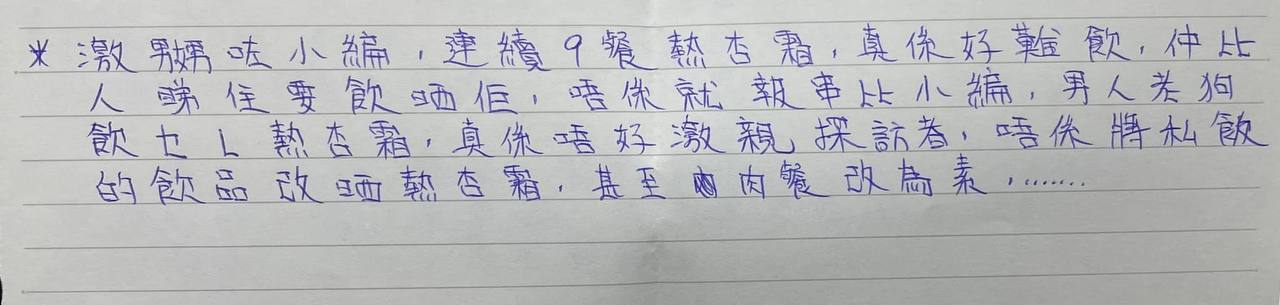 * 激嬲咗小編，連續9餐熱杏霜，真係好難飲，仲比
人睇住要飲晒佢，唔係就報串比小編，男人老狗
飲乜L熱杏霜，真係唔好激親探訪者，唔係將私飯
的飲品改晒熱杏霜，甚至肉餐改為素，.......